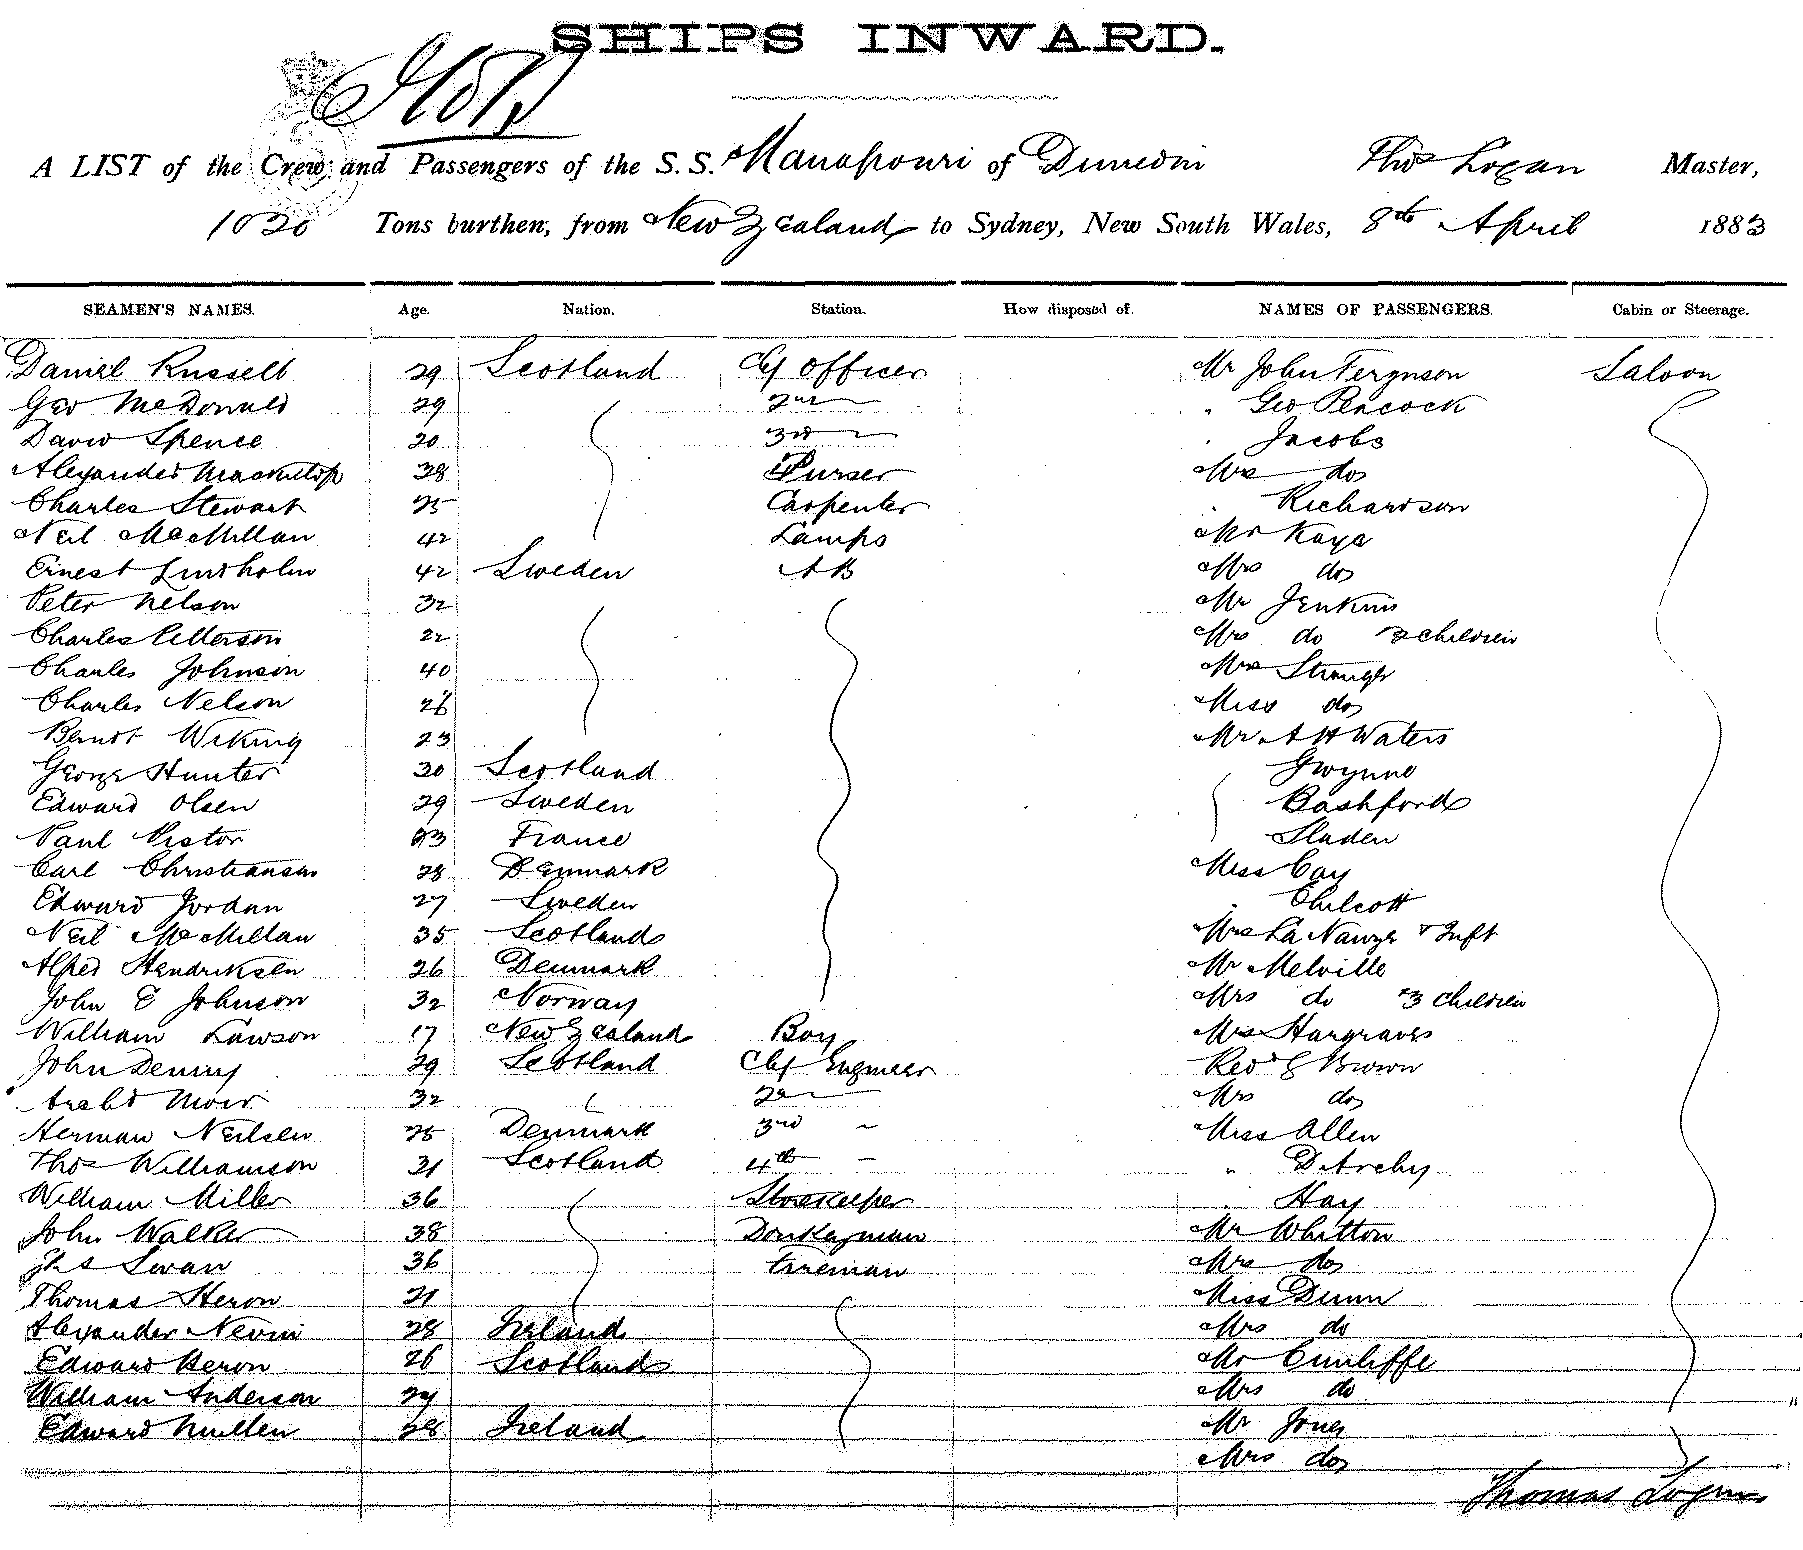 SHIPS INWARD.
A LIST of the Crew and Passengers of the S.S. Manapouri of Dunedin Thos Logan Master,
1020 Tons burthen, from New Zealand to Sydney, New South Wales, 8th April 1883
SEAMEN'S NAMES. Age. Nation. Station. How disposed of. NAMES OF PASSENGERS. Cabin or Steerage.
Daniel Russell 29 Scotland Cf Officer Mr John Ferguson Saloon
Geo McDonald 29 2nd " Geo Peacock
David Spence 20 3rd " Jacobs
Alexander 38 Purser Mrs do
Charles Stewart 25 Carpenter " Richardson
Neil MacMillan 42 Lamps Mr Kaye
Ernest Lindholm 42 Sweden AB Mrs do
Peter Nelson 32 Mr Jenkins
Charles Petterson 22 Mrs do 2 children
Charles Johnson 40 Mrs
Charles Nelson 26 Miss do
Berndt Wiking 23 Mr A H Waters
George Hunter 30 Scotland Gwynne
Edward Olsen 29 Sweden Bashford
Paul Pistor 23 France Sladen
Carl Christiansen 28 Denmark Miss Cay
Edward Jordan 27 Sweden " Chilcott
Neil McMillan 35 Scotland Mrs La Nauze & Inft
Alfred Hendriksen 26 Denmark Mr Melville
John E Johnson 32 Norway Mrs do 3 children
William Lawson 17 New Zealand Boy Mrs Hargraves
John Denny 29 Scotland Chf Engineer Revd G Brown
Archd Moir 32 2nd Mrs do
Herman Neilsen 25 Denmark 3rd Miss Allen
Thos Williamson 31 Scotland 4th " D'Archy
William Miller 36 Storekeeper " Hay
John Walker 38 Donkeyman Mr Whitton
Jas Swan 36 Fireman Mrs do
Thomas Heron 21 Miss Dunn
Alexander Nevin 28 Ireland Mrs do
Edward Heron 26 Scotland Mr Cunliffe
William Anderson 29 Mrs do
Edward Mullen 28 Ireland Mr Jones
Mrs do
Thomas Logan